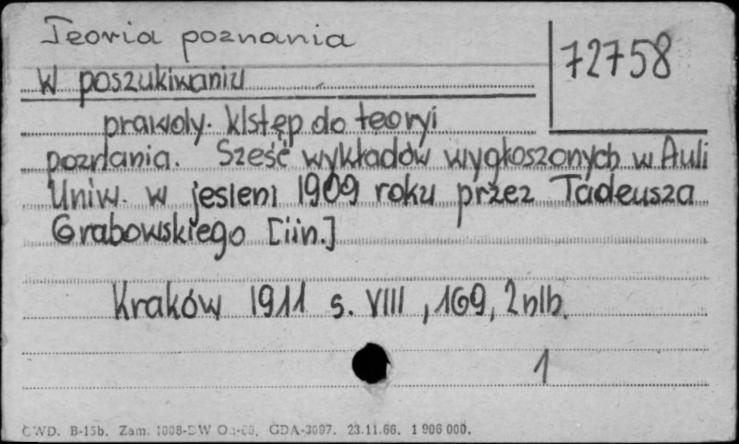 Teoria poznania
72758
W poszukiwaniu
prawdy. Wstęp do teoryi
poznania. Sześć wykładów wygłoszonych w Auli
Uniw. w jesieni 1909 roku przez Tadeusza
Grabowskiego [i in.]
Kraków 1911 s. VIII, 169, 2 nlb.
1
CWD. B-15b. Zam. GDA-3097. 23.11.66. 1 906 000.